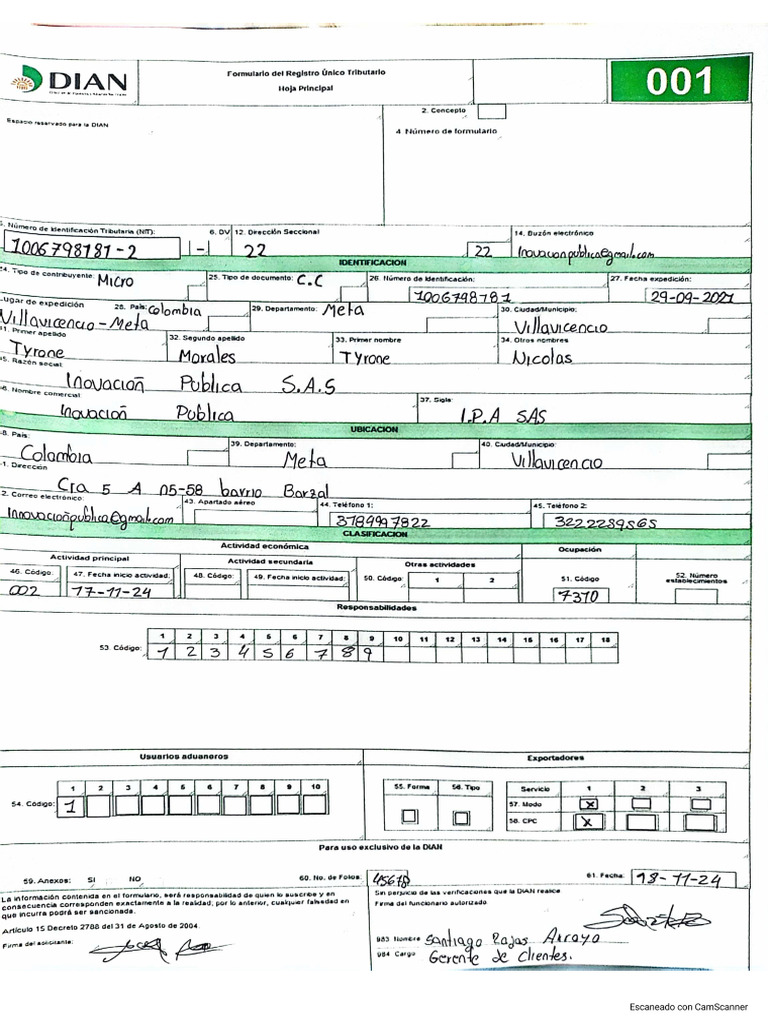 DIAN
Formulario del Registro Único Tributario
Hoja Principal
001
2. Concepto
Espacio reservado para la DIAN
4. Número de formulario
5. Número de Identificación Tributaria (NIT):
6. DV
12. Dirección Seccional
14. Buzón electrónico
1006798181-2
-
22
22
Inovacionpublica@gmail.com
IDENTIFICACION
24. Tipo de contribuyente: Micro
25. Tipo de documento: C.C
26. Número de Identificación:
1006798181
27. Fecha expedición:
29-09-2021
Lugar de expedición
28. País: Colombia
29. Departamento: Meta
30. Ciudad/Municipio:
Villavicencio - Meta
Villavicencio
31. Primer apellido
32. Segundo apellido
33. Primer nombre
34. Otros nombres
Tyrone
Morales
Tyrone
Nicolas
35. Razón social:
Inovacioñ Publica S.A.S
36. Nombre comercial:
37. Sigla:
Inovacioñ Publica
I.P.A SAS
UBICACION
38. País:
39. Departamento:
40. Ciudad/Municipio:
Colombia
Meta
Villavicencio
41. Dirección
Cra 5 A 05-58 barrio Barzal
42. Correo electrónico:
43. Apartado aéreo
44. Teléfono 1:
45. Teléfono 2:
Innovacioñpublica@gmail.com
3789997822
3222289565
CLASIFICACION
Actividad económica
Ocupación
Actividad principal
Actividad secundaria
Otras actividades
46. Código:
47. Fecha inicio actividad:
48. Código:
49. Fecha inicio actividad:
50. Código:
1 2
51. Código
52. Número establecimientos
002
17-11-24
7310
Responsabilidades
1 2 3 4 5 6 7 8 9 10 11 12 13 14 15 16 17 18
53. Código: 1 2 3 4 5 6 7 8 9
Usuarios aduaneros
Exportadores
1 2 3 4 5 6 7 8 9 10
54. Código: 1
55. Forma
56. Tipo
Servicio 1 2 3
57. Modo X
58. CPC X
Para uso exclusivo de la DIAN
59. Anexos: SI NO
60. No. de Folios: 45678
61. Fecha: 18-11-24
La información contenida en el formulario, será responsabilidad de quien lo suscribe y en
consecuencia corresponden exactamente a la realidad; por lo anterior, cualquier falsedad en
que incurra podrá ser sancionada.
Artículo 15 Decreto 2788 del 31 de Agosto de 2004.
Firma del solicitante:
Sin perjuicio de las verificaciones que la DIAN realice
Firma del funcionario autorizado
983 Nombre Santiago Rojas Arroyo
984 Cargo Gerente de Clientes.
Escaneado con CamScanner